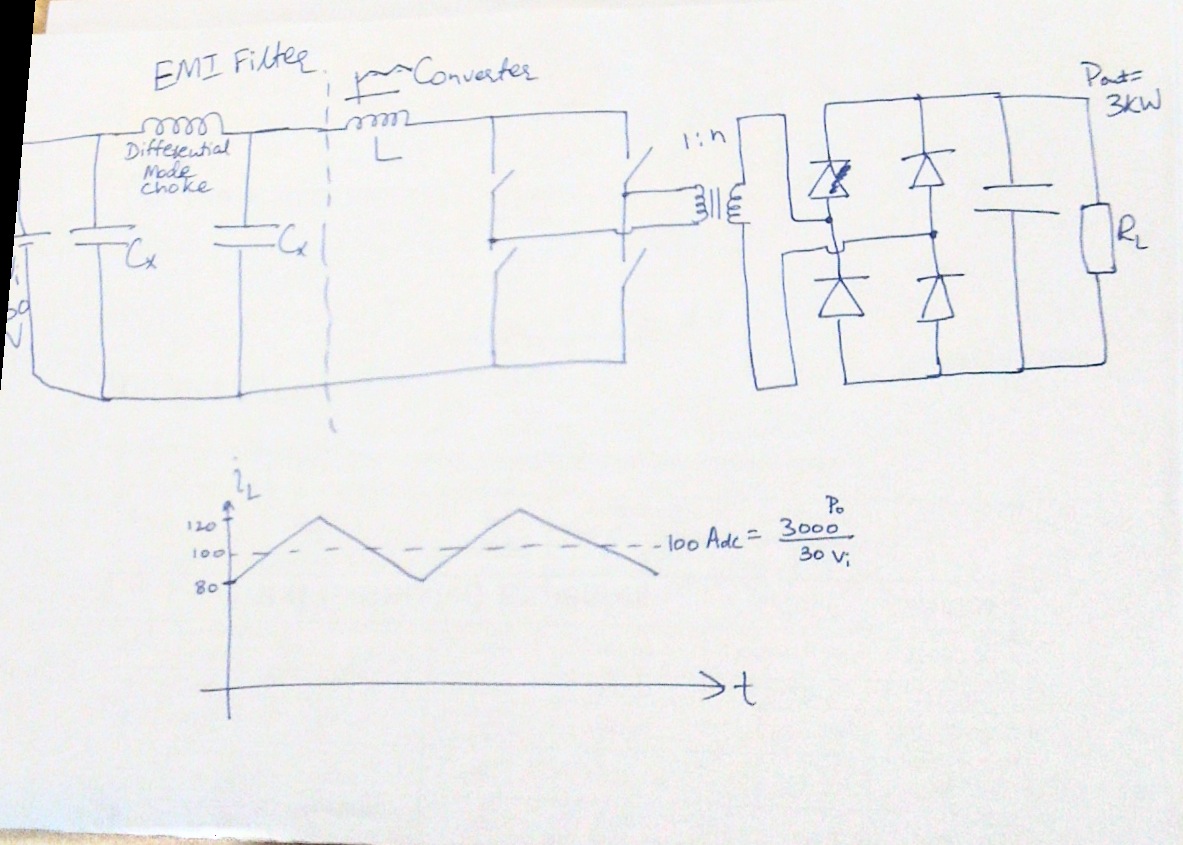 EMI Filter
Converter
Pout=
3KW
Differential
Mode
choke
L
1:n
Cx
Cx
RL
V
iL
120
100
80
100 Adc = 3000 / 30
Po
Vi
t